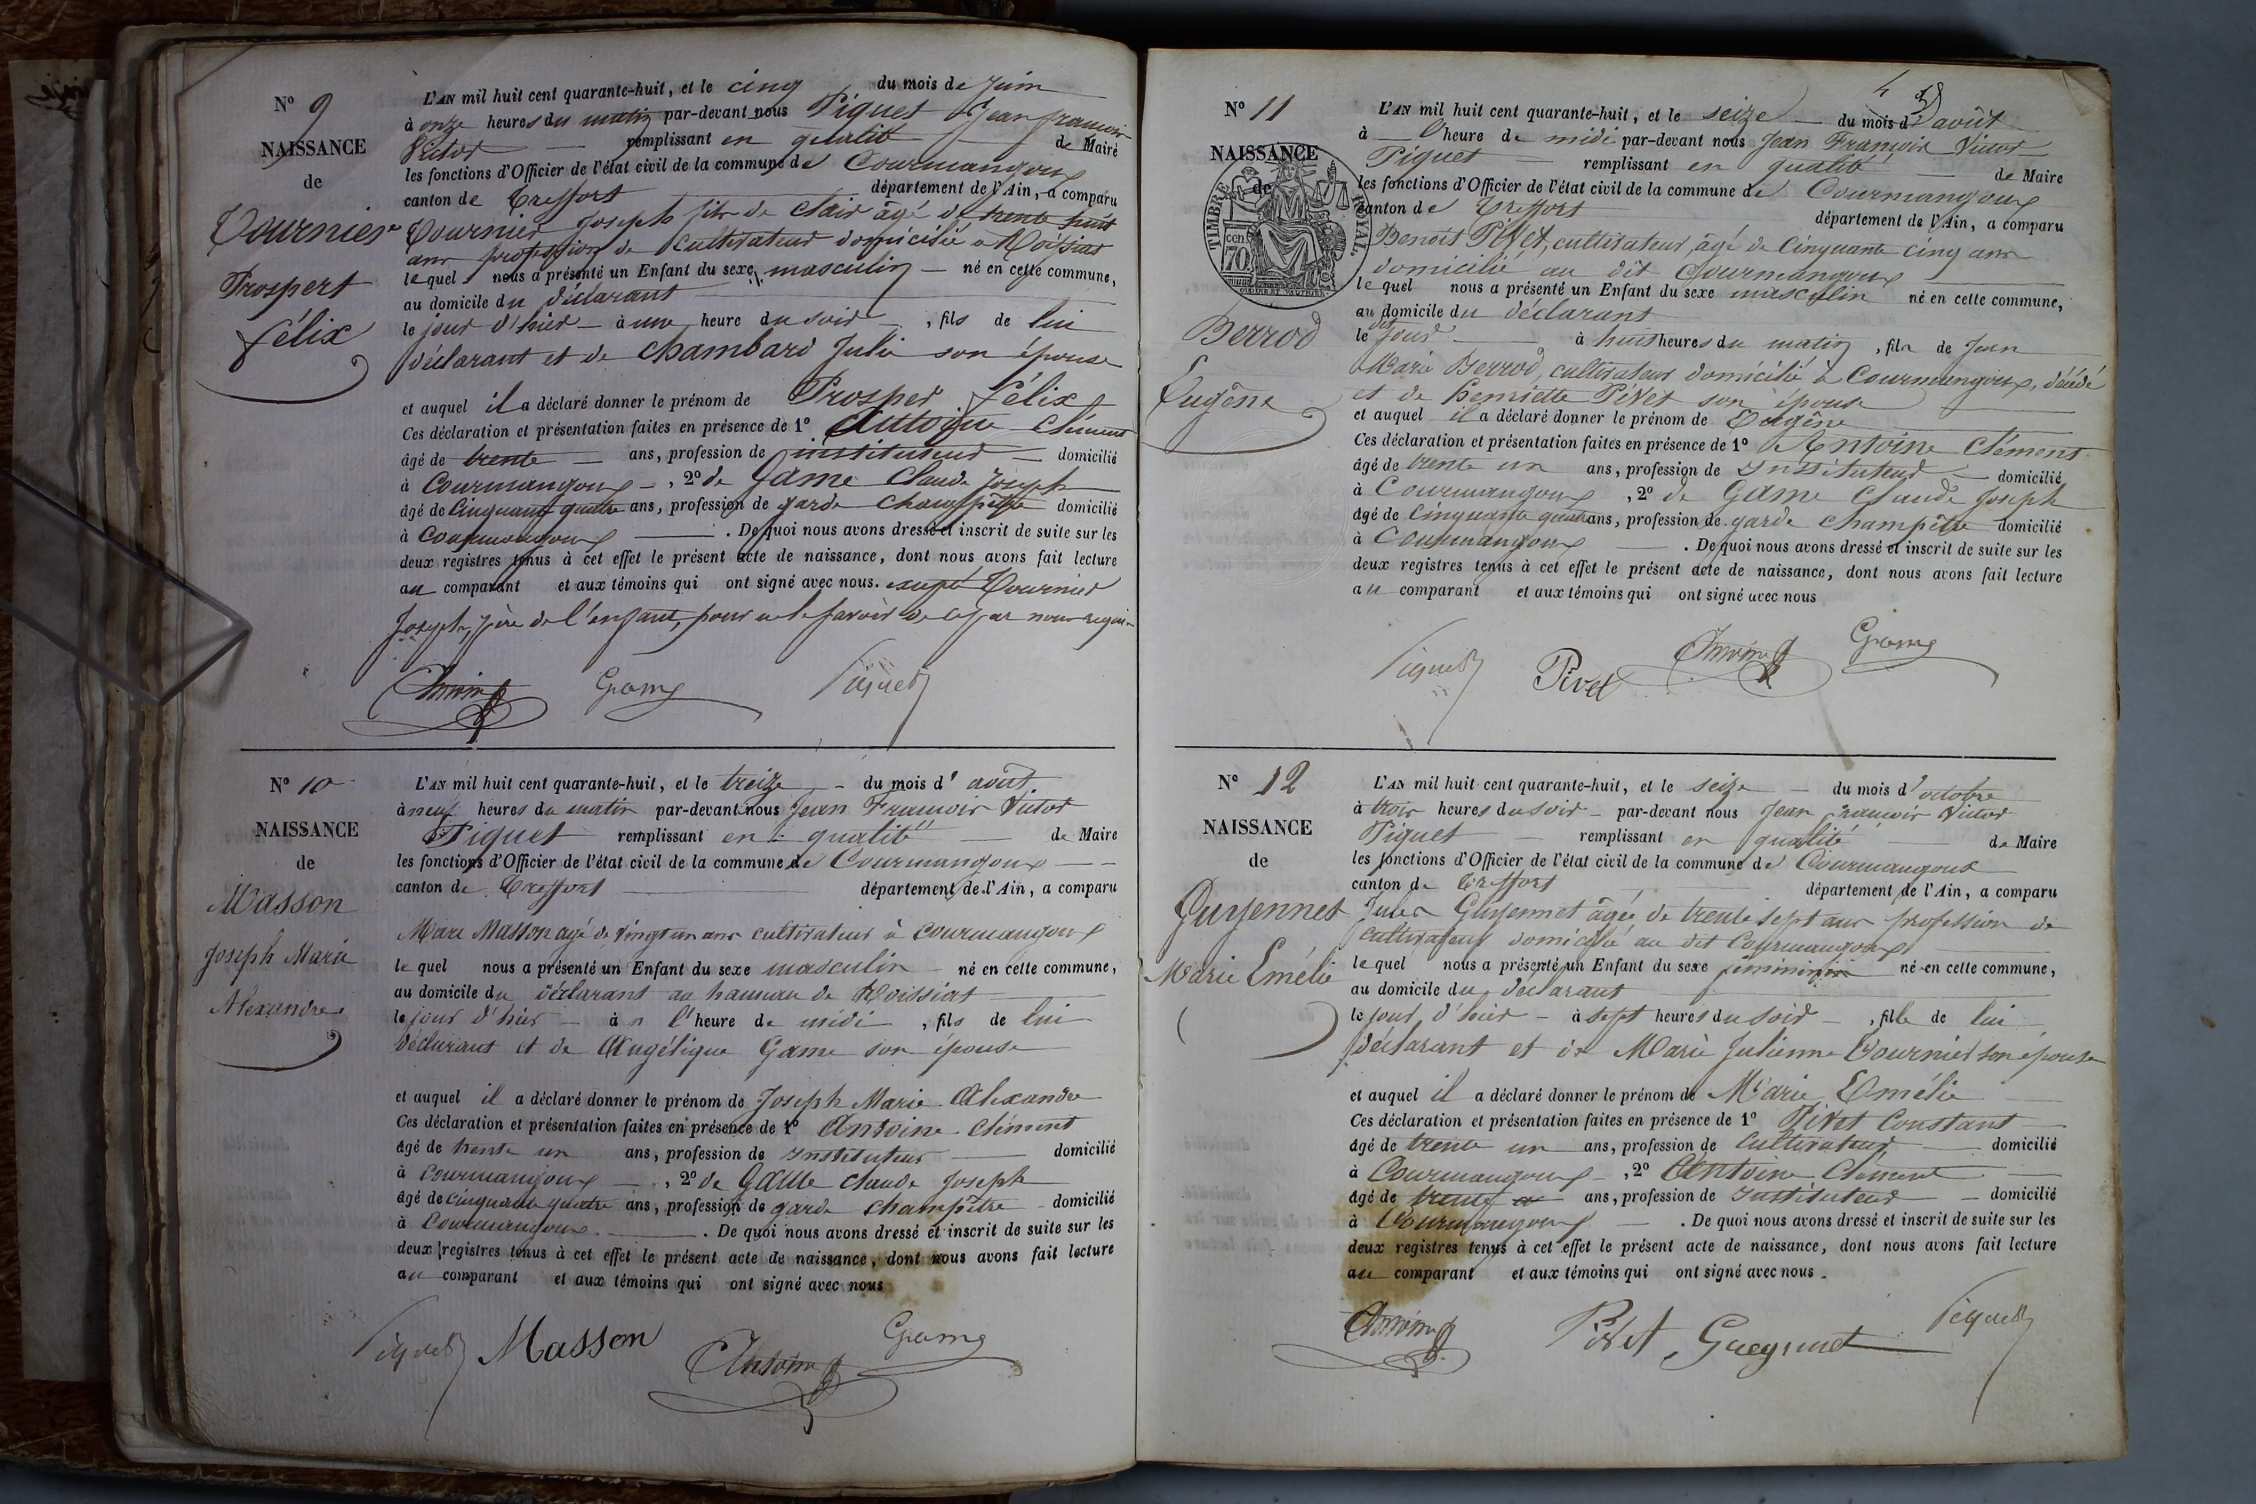 N° 9
NAISSANCE
de
Tournier
Prospert
Félix
L'AN mil huit cent quarante-huit, et le cinq du mois de Juin
à onze heures du matin par-devant nous Piquet Jean françois
Victor remplissant en qualité de Maire
les fonctions d'Officier de l'état civil de la commune de Courmangoux
canton de Treffort département de l'Ain, a comparu
Tournier Joseph fils de Clair âgé de trente huit
ans profession de cultivateur domicilié à Roissiat
lequel nous a présenté un Enfant du sexe masculin né en cette commune,
au domicile du déclarant
le jour d'hier à une heure du soir, fils de lui
déclarant et de Chambard Julie son épouse
et auquel il a déclaré donner le prénom de Prosper Félix
Ces déclaration et présentation faites en présence de 1° Antoine Clément
âgé de trente ans, profession de instituteur domicilié
à Courmangoux, 2° de Game Claude Joseph
âgé de Cinquante quatre ans, profession de garde champêtre domicilié
à Courmangoux. De quoi nous avons dressé et inscrit de suite sur les
deux registres tenus à cet effet le présent acte de naissance, dont nous avons fait lecture
au comparant et aux témoins qui ont signé avec nous. excepté Tournier
Joseph, père de l'enfant, pour ne le savoir de ce par nous requis
Antoine Game Piquet
N° 10
NAISSANCE
de
Masson
Joseph Marie
Alexandre
L'AN mil huit cent quarante-huit, et le treize du mois d'août
à neuf heures du matin par-devant nous Jean François Victor
Piquet remplissant en qualité de Maire
les fonctions d'Officier de l'état civil de la commune de Courmangoux
canton de Treffort département de l'Ain, a comparu
Marc Masson agé de vingt un ans cultivateur à Courmangoux
lequel nous a présenté un Enfant du sexe masculin né en cette commune,
au domicile du déclarant au hameau de Roissiat
le jour d'hier à l'heure de midi, fils de lui
déclarant et de Angélique Game son épouse
et auquel il a déclaré donner le prénom de Joseph Marie Alexandre
Ces déclaration et présentation faites en présence de 1° Antoine Clément
âgé de trente un ans, profession de Instituteur domicilié
à Courmangoux, 2° de Game Claude Joseph
âgé de cinquante quatre ans, profession de garde champêtre domicilié
à Courmangoux. De quoi nous avons dressé et inscrit de suite sur les
deux registres tenus à cet effet le présent acte de naissance, dont nous avons fait lecture
au comparant et aux témoins qui ont signé avec nous
Piquet Masson Antoine Game
4
N° 11
NAISSANCE
de
TIMBRE ROYAL.
70 cen
Berrod
Eugêne
L'AN mil huit cent quarante-huit, et le seize du mois d'août
à l'heure de midi par-devant nous Jean François Victor
Piquet remplissant en qualité de Maire
les fonctions d'Officier de l'état civil de la commune de Courmangoux
canton de Treffort département de l'Ain, a comparu
Benoit Pivet, cultivateur, âgé de Cinquante cinq ans
domicilié au dit Courmangoux
lequel nous a présenté un Enfant du sexe masculin né en cette commune,
au domicile du déclarant
le dit jour à huit heures du matin, fils de Jean
Marie Berrod, cultivateur domicilié à Courmangoux, décédé
et de henriette Pivet son épouse
et auquel il a déclaré donner le prénom de Eugêne
Ces déclaration et présentation faites en présence de 1° Antoine Clément
âgé de trente un ans, profession de Instituteur domicilié
à Courmangoux, 2° de Game Claude Joseph
âgé de cinquante quatre ans, profession de garde champêtre domicilié
à Courmangoux. De quoi nous avons dressé et inscrit de suite sur les
deux registres tenus à cet effet le présent acte de naissance, dont nous avons fait lecture
au comparant et aux témoins qui ont signé avec nous
Piquet Pivet Antoine Game
N° 12
NAISSANCE
de
Guyennet
Marie Emélie
L'AN mil huit cent quarante-huit, et le seize du mois d'octobre
à trois heures du soir par-devant nous Jean François Victor
Piquet remplissant en qualité de Maire
les fonctions d'Officier de l'état civil de la commune de Courmangoux
canton de Treffort département de l'Ain, a comparu
Jules Guyennet âgé de trente sept ans profession de
cultivateur domicilié au dit Courmangoux
lequel nous a présenté un Enfant du sexe féminin né en cette commune,
au domicile du déclarant
le jour d'hier à sept heures du soir, fille de lui
déclarant et de Marie Julienne Tournier son épouse
et auquel il a déclaré donner le prénom de Marie Emélie
Ces déclaration et présentation faites en présence de 1° Pivet Constant
âgé de trente un ans, profession de Cultivateur domicilié
à Courmangoux, 2° Antoine Clément
âgé de trente ans, profession de Instituteur domicilié
à Courmangoux. De quoi nous avons dressé et inscrit de suite sur les
deux registres tenus à cet effet le présent acte de naissance, dont nous avons fait lecture
au comparant et aux témoins qui ont signé avec nous.
Antoine Pivet Gueynnet Piquet